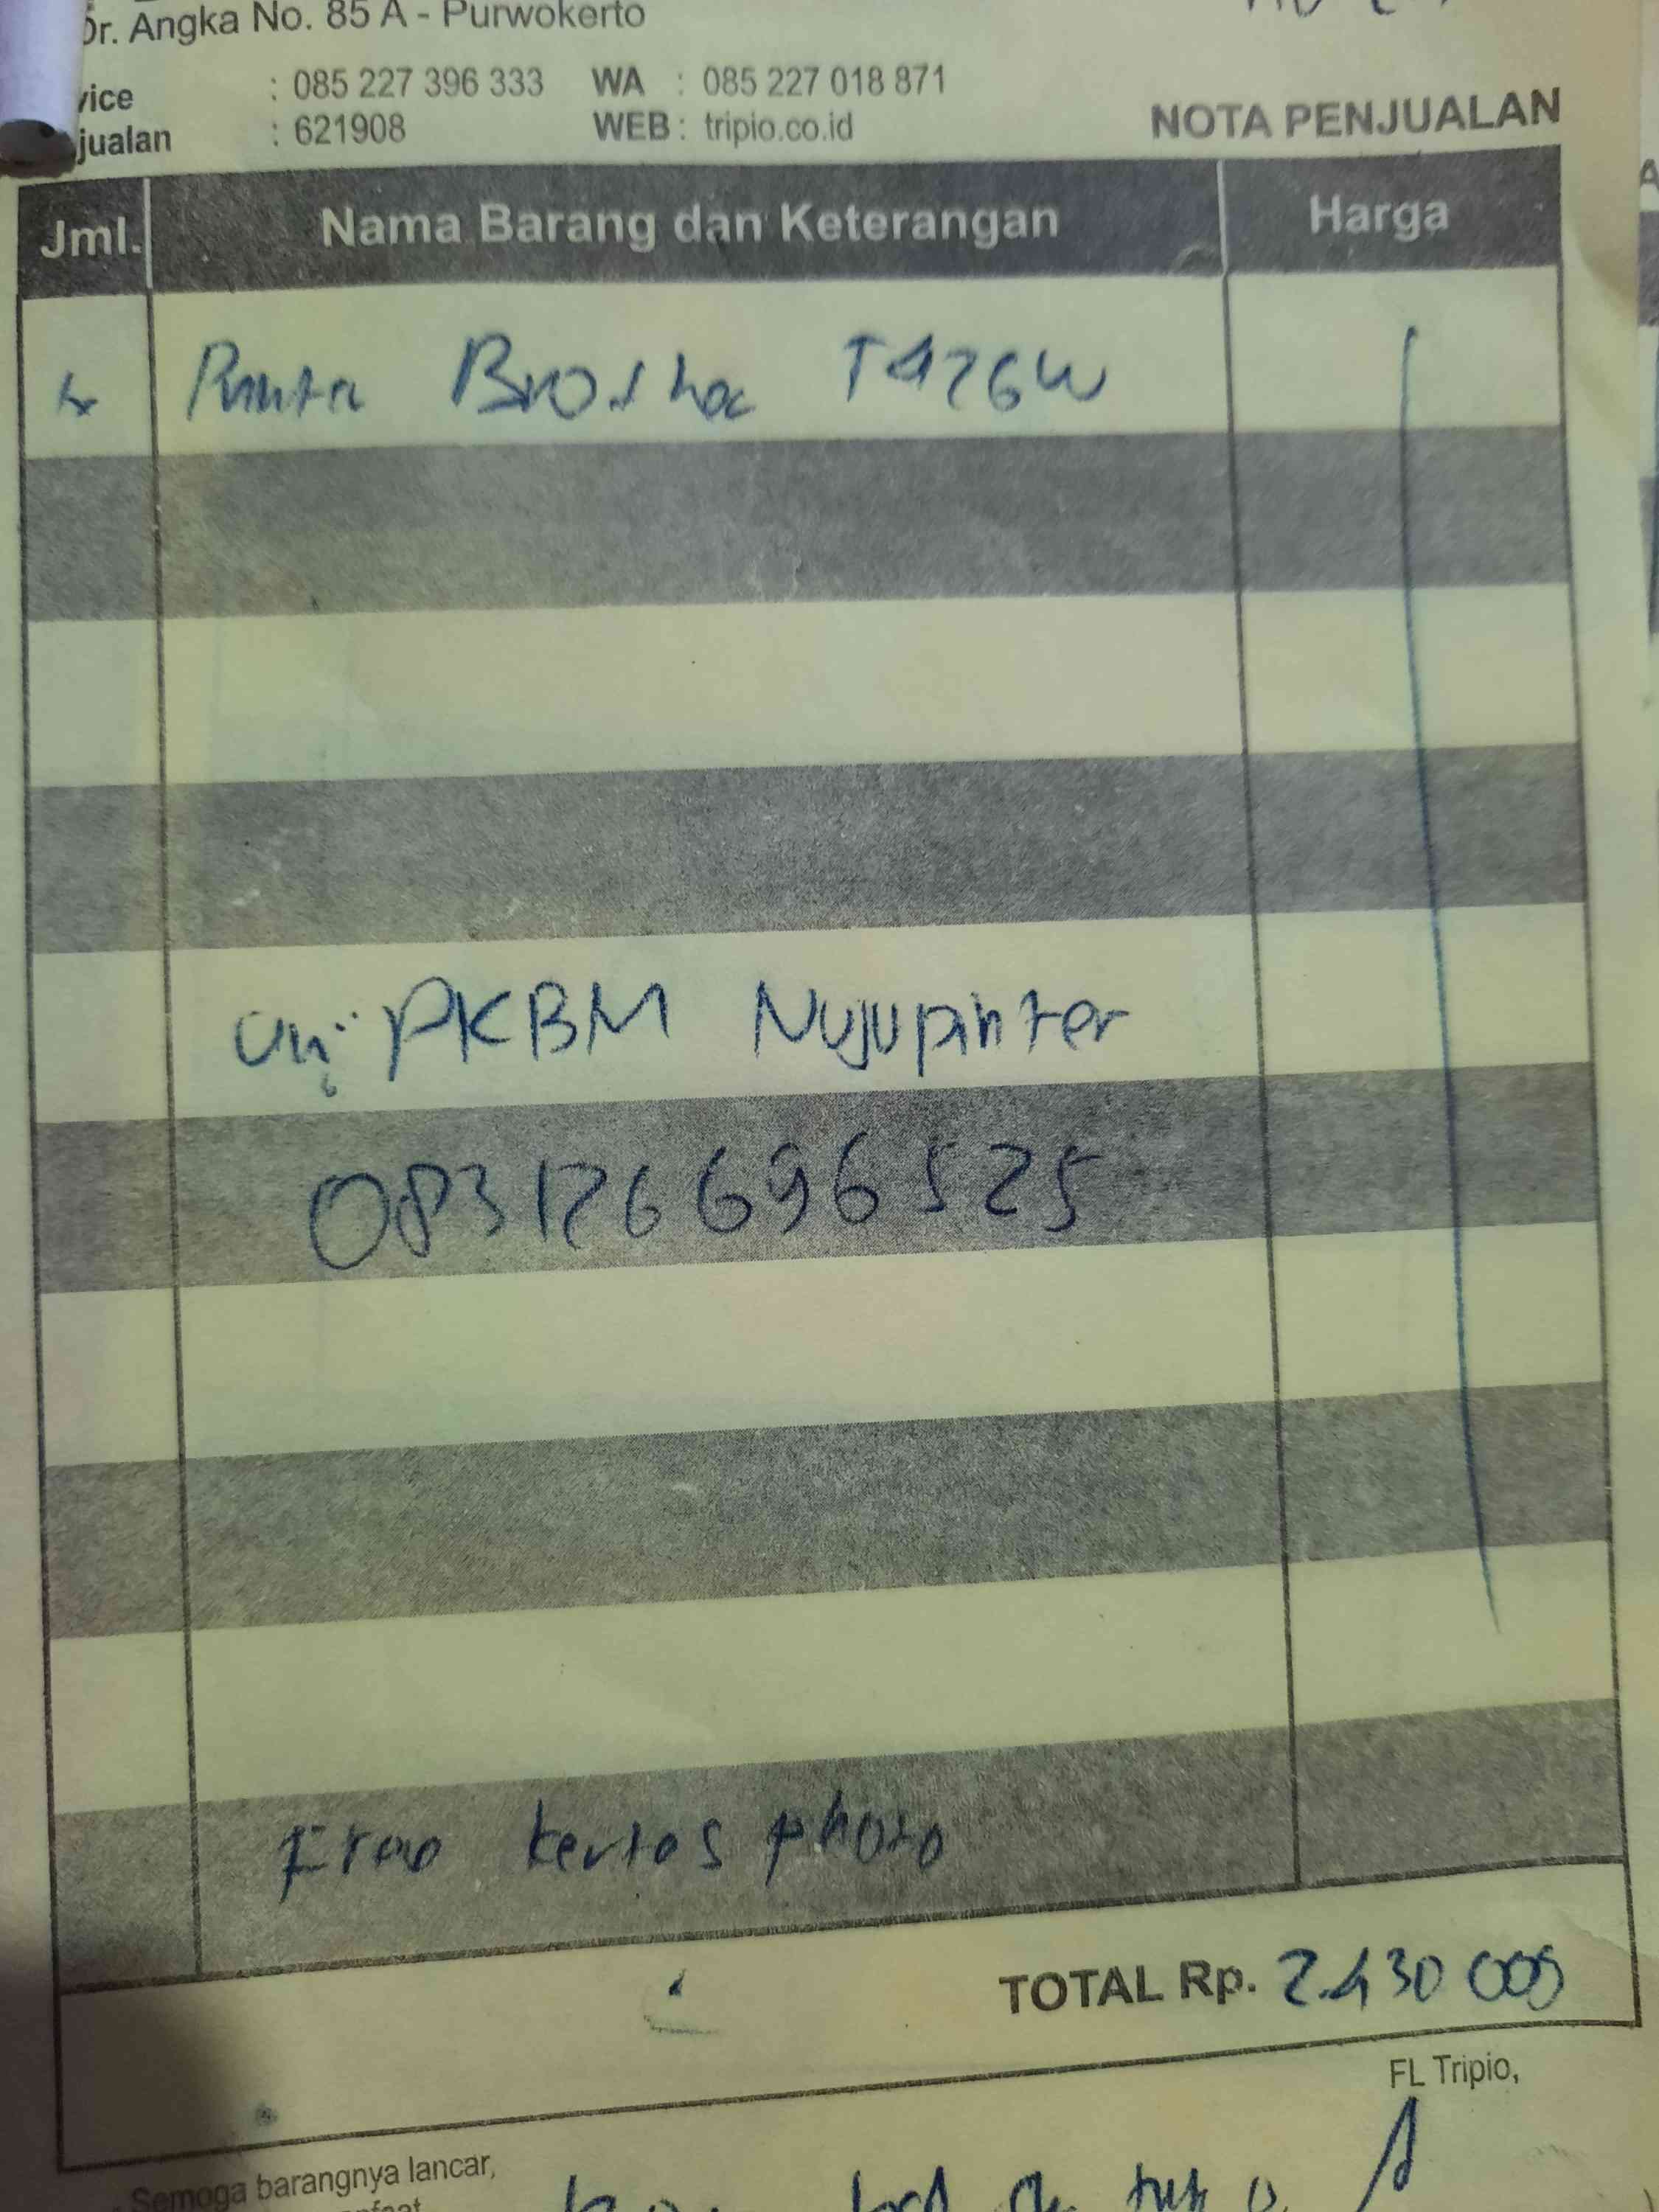 Dr. Angka No. 85 A - Purwokerto
vice : 085 227 396 333 WA : 085 227 018 871
jualan : 621908 WEB : tripio.co.id
NOTA PENJUALAN
Jml. Nama Barang dan Keterangan Harga
Printer Brother T426W
PKBM Nujupinter
083126696525
Free kertas photo
TOTAL Rp. 2.430 000
FL Tripio,
Semoga barangnya lancar,